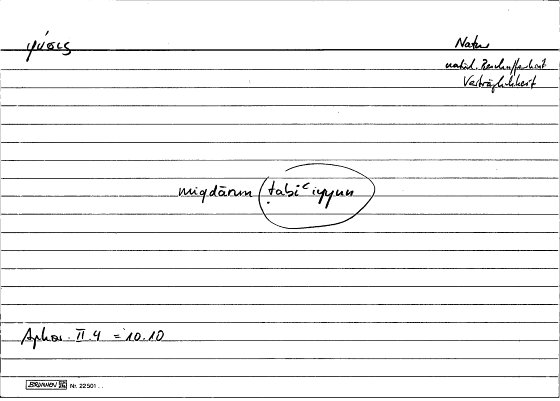 φύσις
Natur
natürl. Beschaffenheit
Verträglichkeit
miqdārun ṭabīʿiyyun
Aphor. II.4 = 10.10
BRUNNEN Nr. 22501